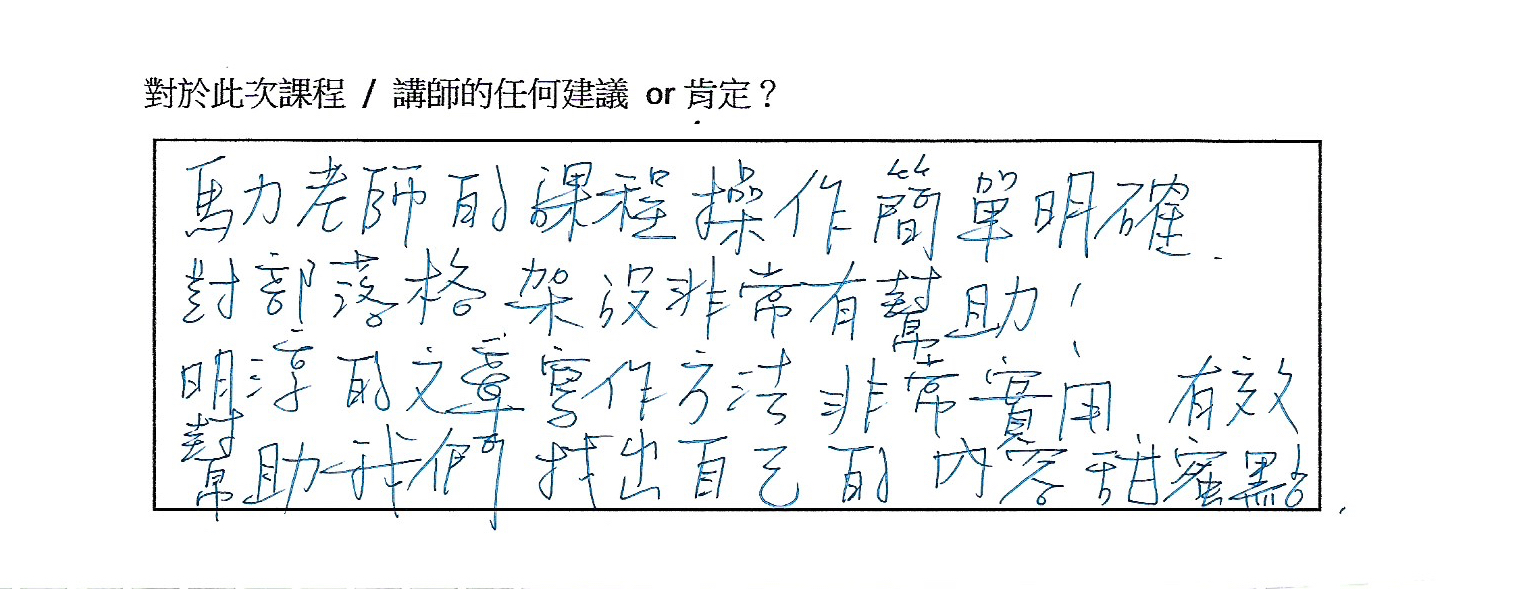 對於此次課程 / 講師的任何建議 or 肯定？
馬力老師的課程操作簡單明確.
對部落格架設非常有幫助！
明淳的文章寫作方法非常實用 有效
幫助我們找出自己的內容甜蜜點.